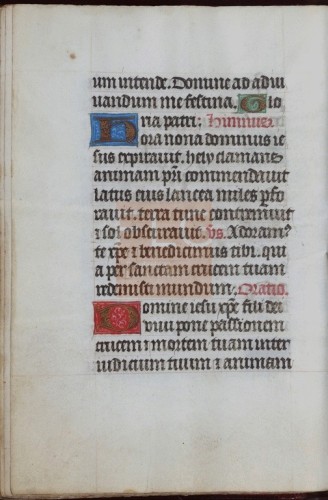 um intende. Domine ad adiu
uandum me festina. Glo
ria patri. Himnus
Hora nona dominus ie
sus expirauit. hely clamans
animam pr̃i commendauit
latus eius lancea miles p̃fo
rauit. terra tunc contremuit
et sol obscurauit. v̄s. Adoram⁹
te xp̄e et benedicimus tibi. qui
a per sanctam crucem tuam
redemisti mundum. Oratio.
Domine iesu xp̄e fili dei
viui pone passionem
crucem et mortem tuam inter
iudicium tuum et animam